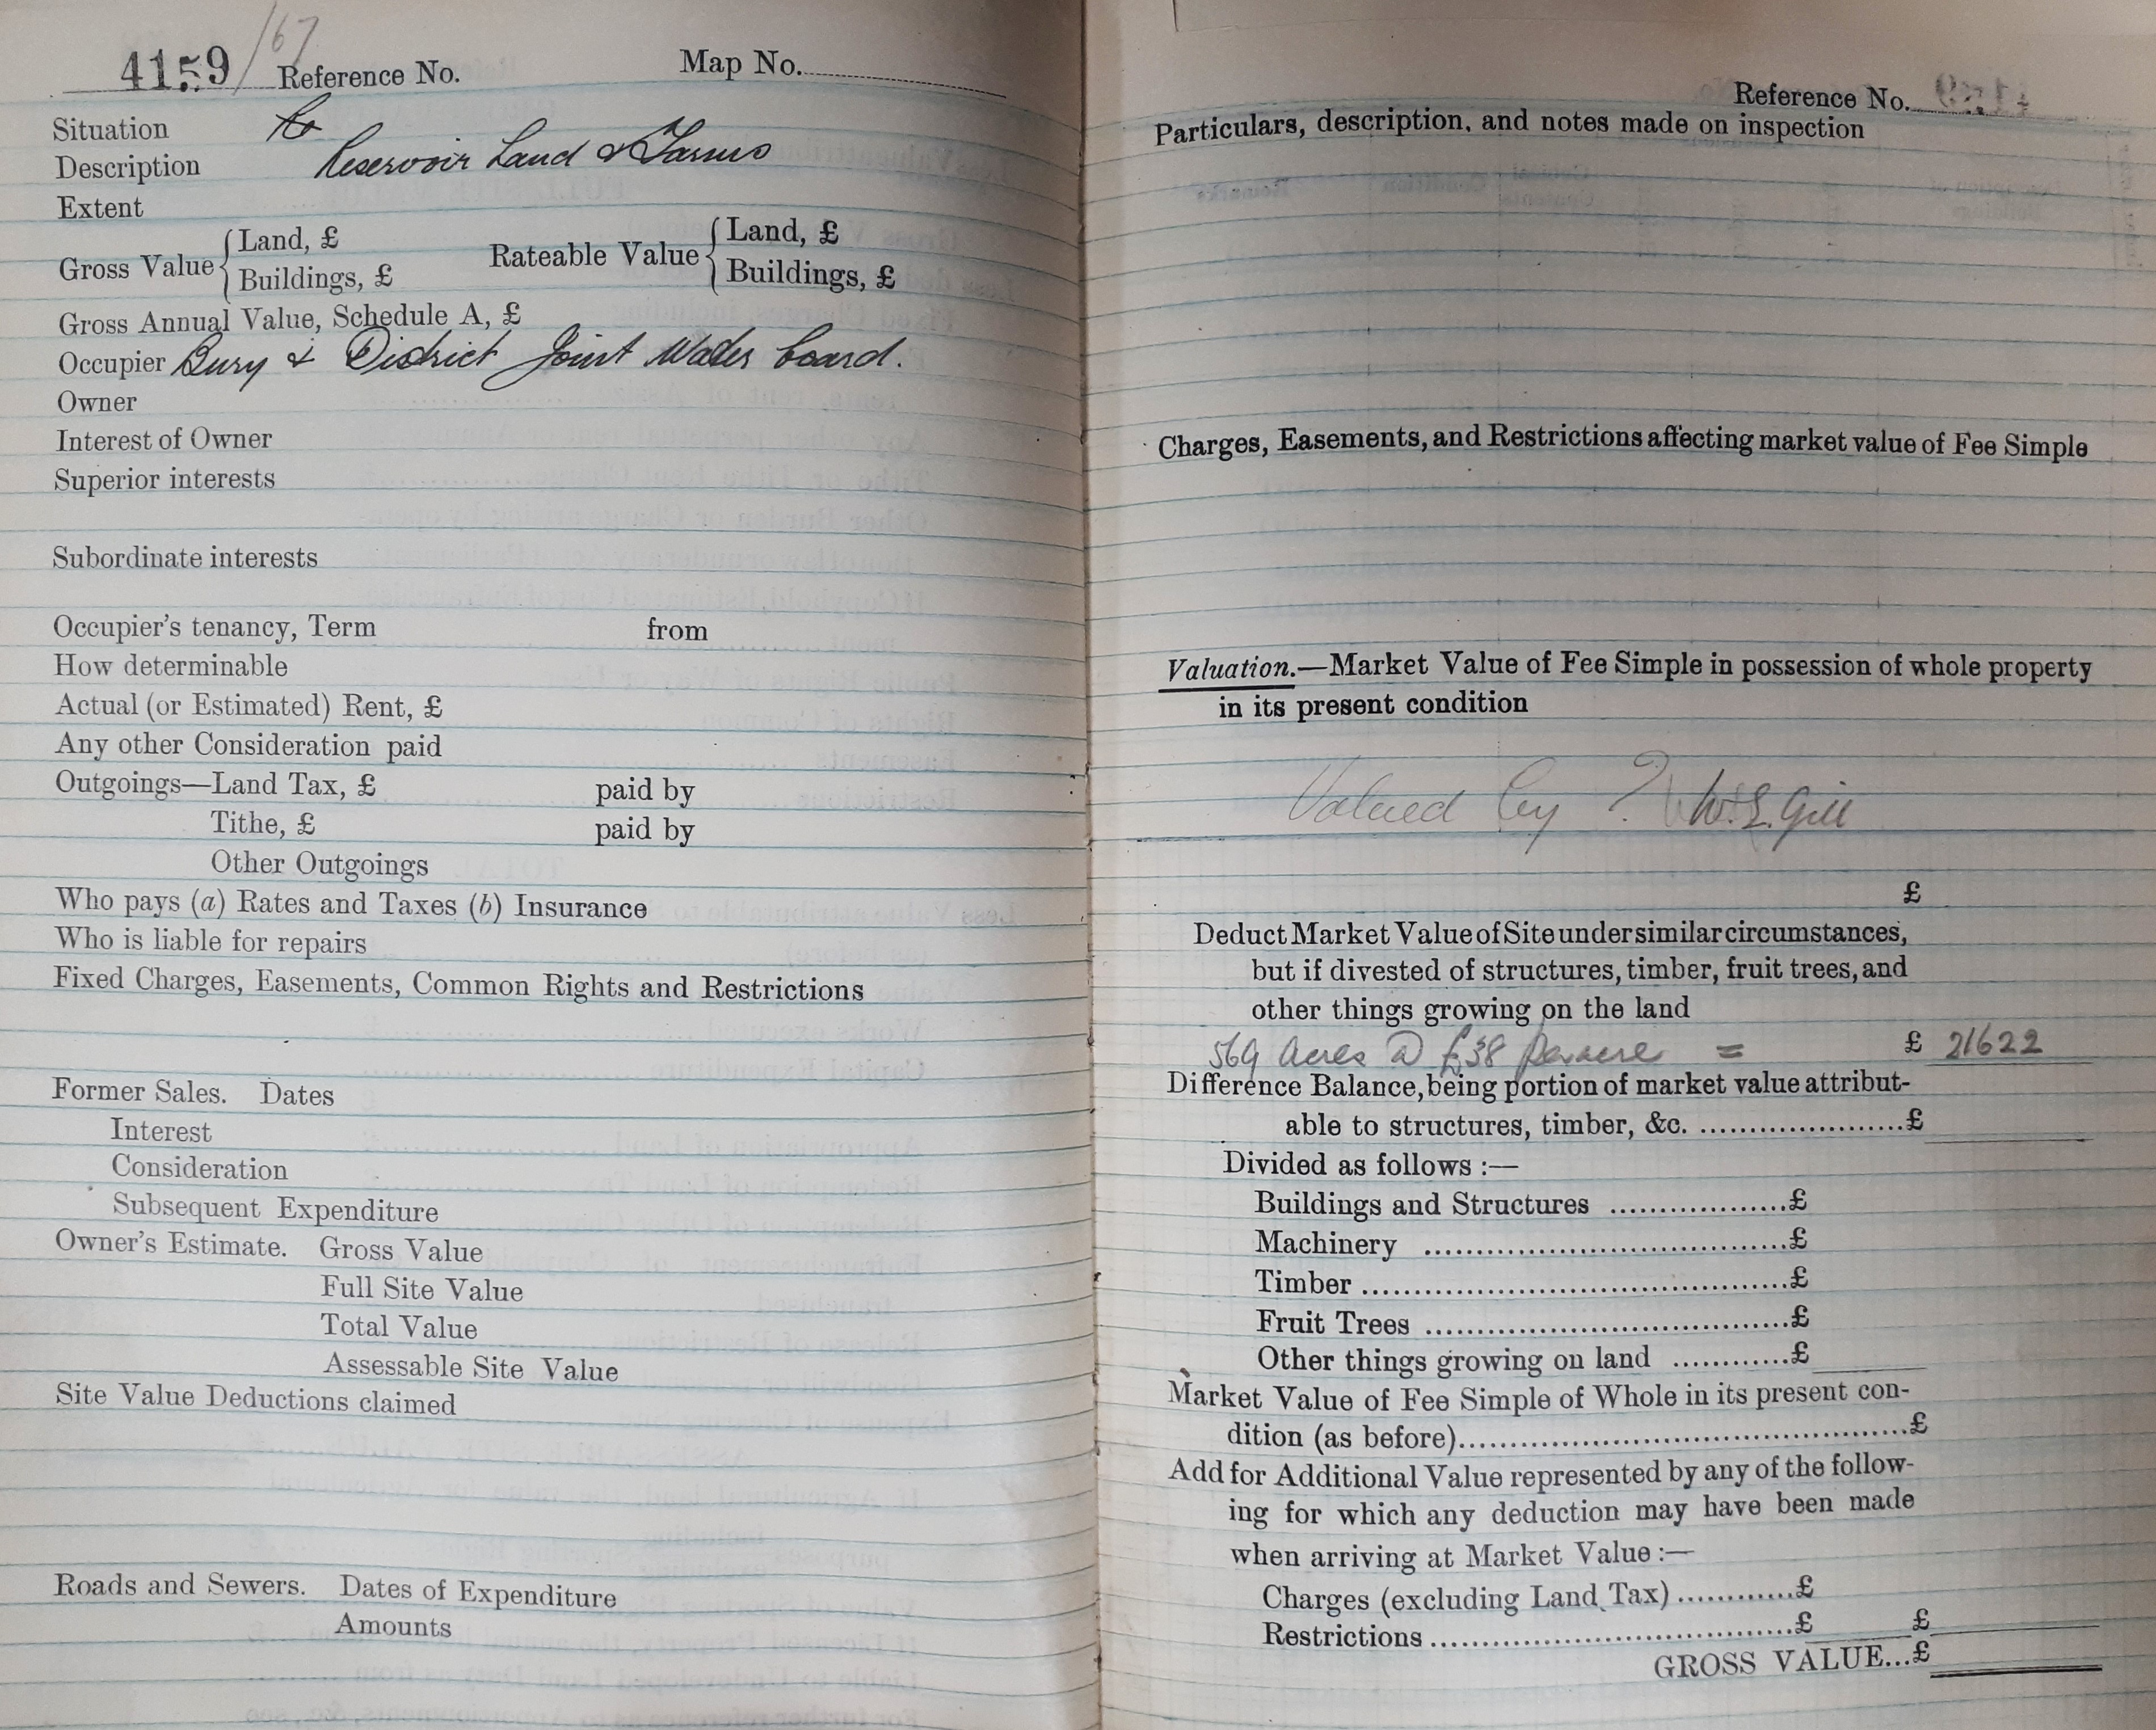 4159/67 Reference No. Map No.
Situation do
Description Reservoir Land & Farms
Extent
Gross Value { Land, £ Rateable Value { Land, £
Buildings, £ Buildings, £
Gross Annual Value, Schedule A, £
Occupier Bury & District Joint Water board.
Owner
Interest of Owner
Superior interests
Subordinate interests
Occupier's tenancy, Term from
How determinable
Actual (or Estimated) Rent, £
Any other Consideration paid
Outgoings—Land Tax, £ paid by
Tithe, £ paid by
Other Outgoings
Who pays (a) Rates and Taxes (b) Insurance
Who is liable for repairs
Fixed Charges, Easements, Common Rights and Restrictions
Former Sales. Dates
Interest
Consideration
Subsequent Expenditure
Owner's Estimate. Gross Value
Full Site Value
Total Value
Assessable Site Value
Site Value Deductions claimed
Roads and Sewers. Dates of Expenditure
Amounts
Reference No.
Particulars, description, and notes made on inspection
Charges, Easements, and Restrictions affecting market value of Fee Simple
Valuation.—Market Value of Fee Simple in possession of whole property
in its present condition
Valued by ? W.S. Gill
£
Deduct Market Value of Site under similar circumstances,
but if divested of structures, timber, fruit trees, and
other things growing on the land
569 acres @ £38 per acre = £ 21622
Difference Balance, being portion of market value attribut-
able to structures, timber, &c. £
Divided as follows :—
Buildings and Structures £
Machinery £
Timber £
Fruit Trees £
Other things growing on land £
Market Value of Fee Simple of Whole in its present con-
dition (as before) £
Add for Additional Value represented by any of the follow-
ing for which any deduction may have been made
when arriving at Market Value :—
Charges (excluding Land Tax) £
Restrictions £ £
GROSS VALUE... £